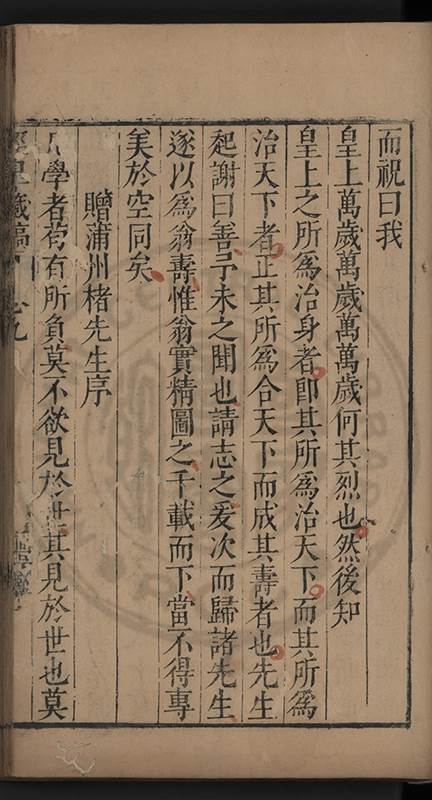 而祝曰我
皇上萬歲萬歲萬萬歲何其烈也然後知
皇上之所為治身者即其所為治天下而其所為
治天下者正其所為合天下而成其壽者也先生
起謝曰善予未之聞也請志之爰次而歸諸先生
遂以為翁壽惟翁實精圖之千載而下當不得專
美於空同矣
贈蒲州楮先生序
學者苟有所負莫不欲見於世其見於世也莫
藏稿
九